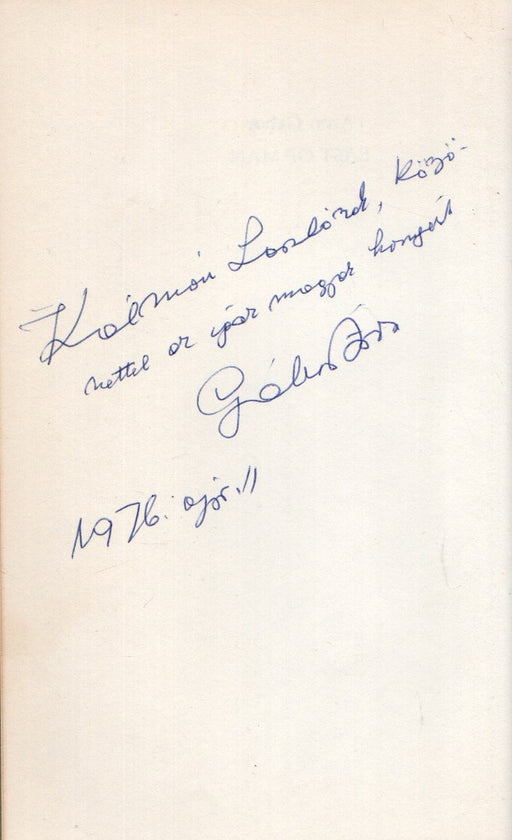 Kálmán Lászlónak, Köszö-
nettel az igaz magyar
Gábor Áron
1976. ápr. 11